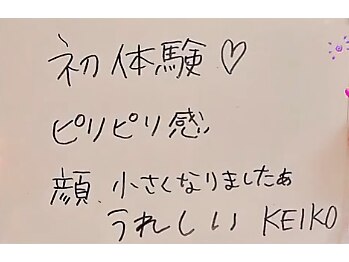 初体験♡
ピリピリ感
顔、小さくなりましたぁ
うれしい KEIKO